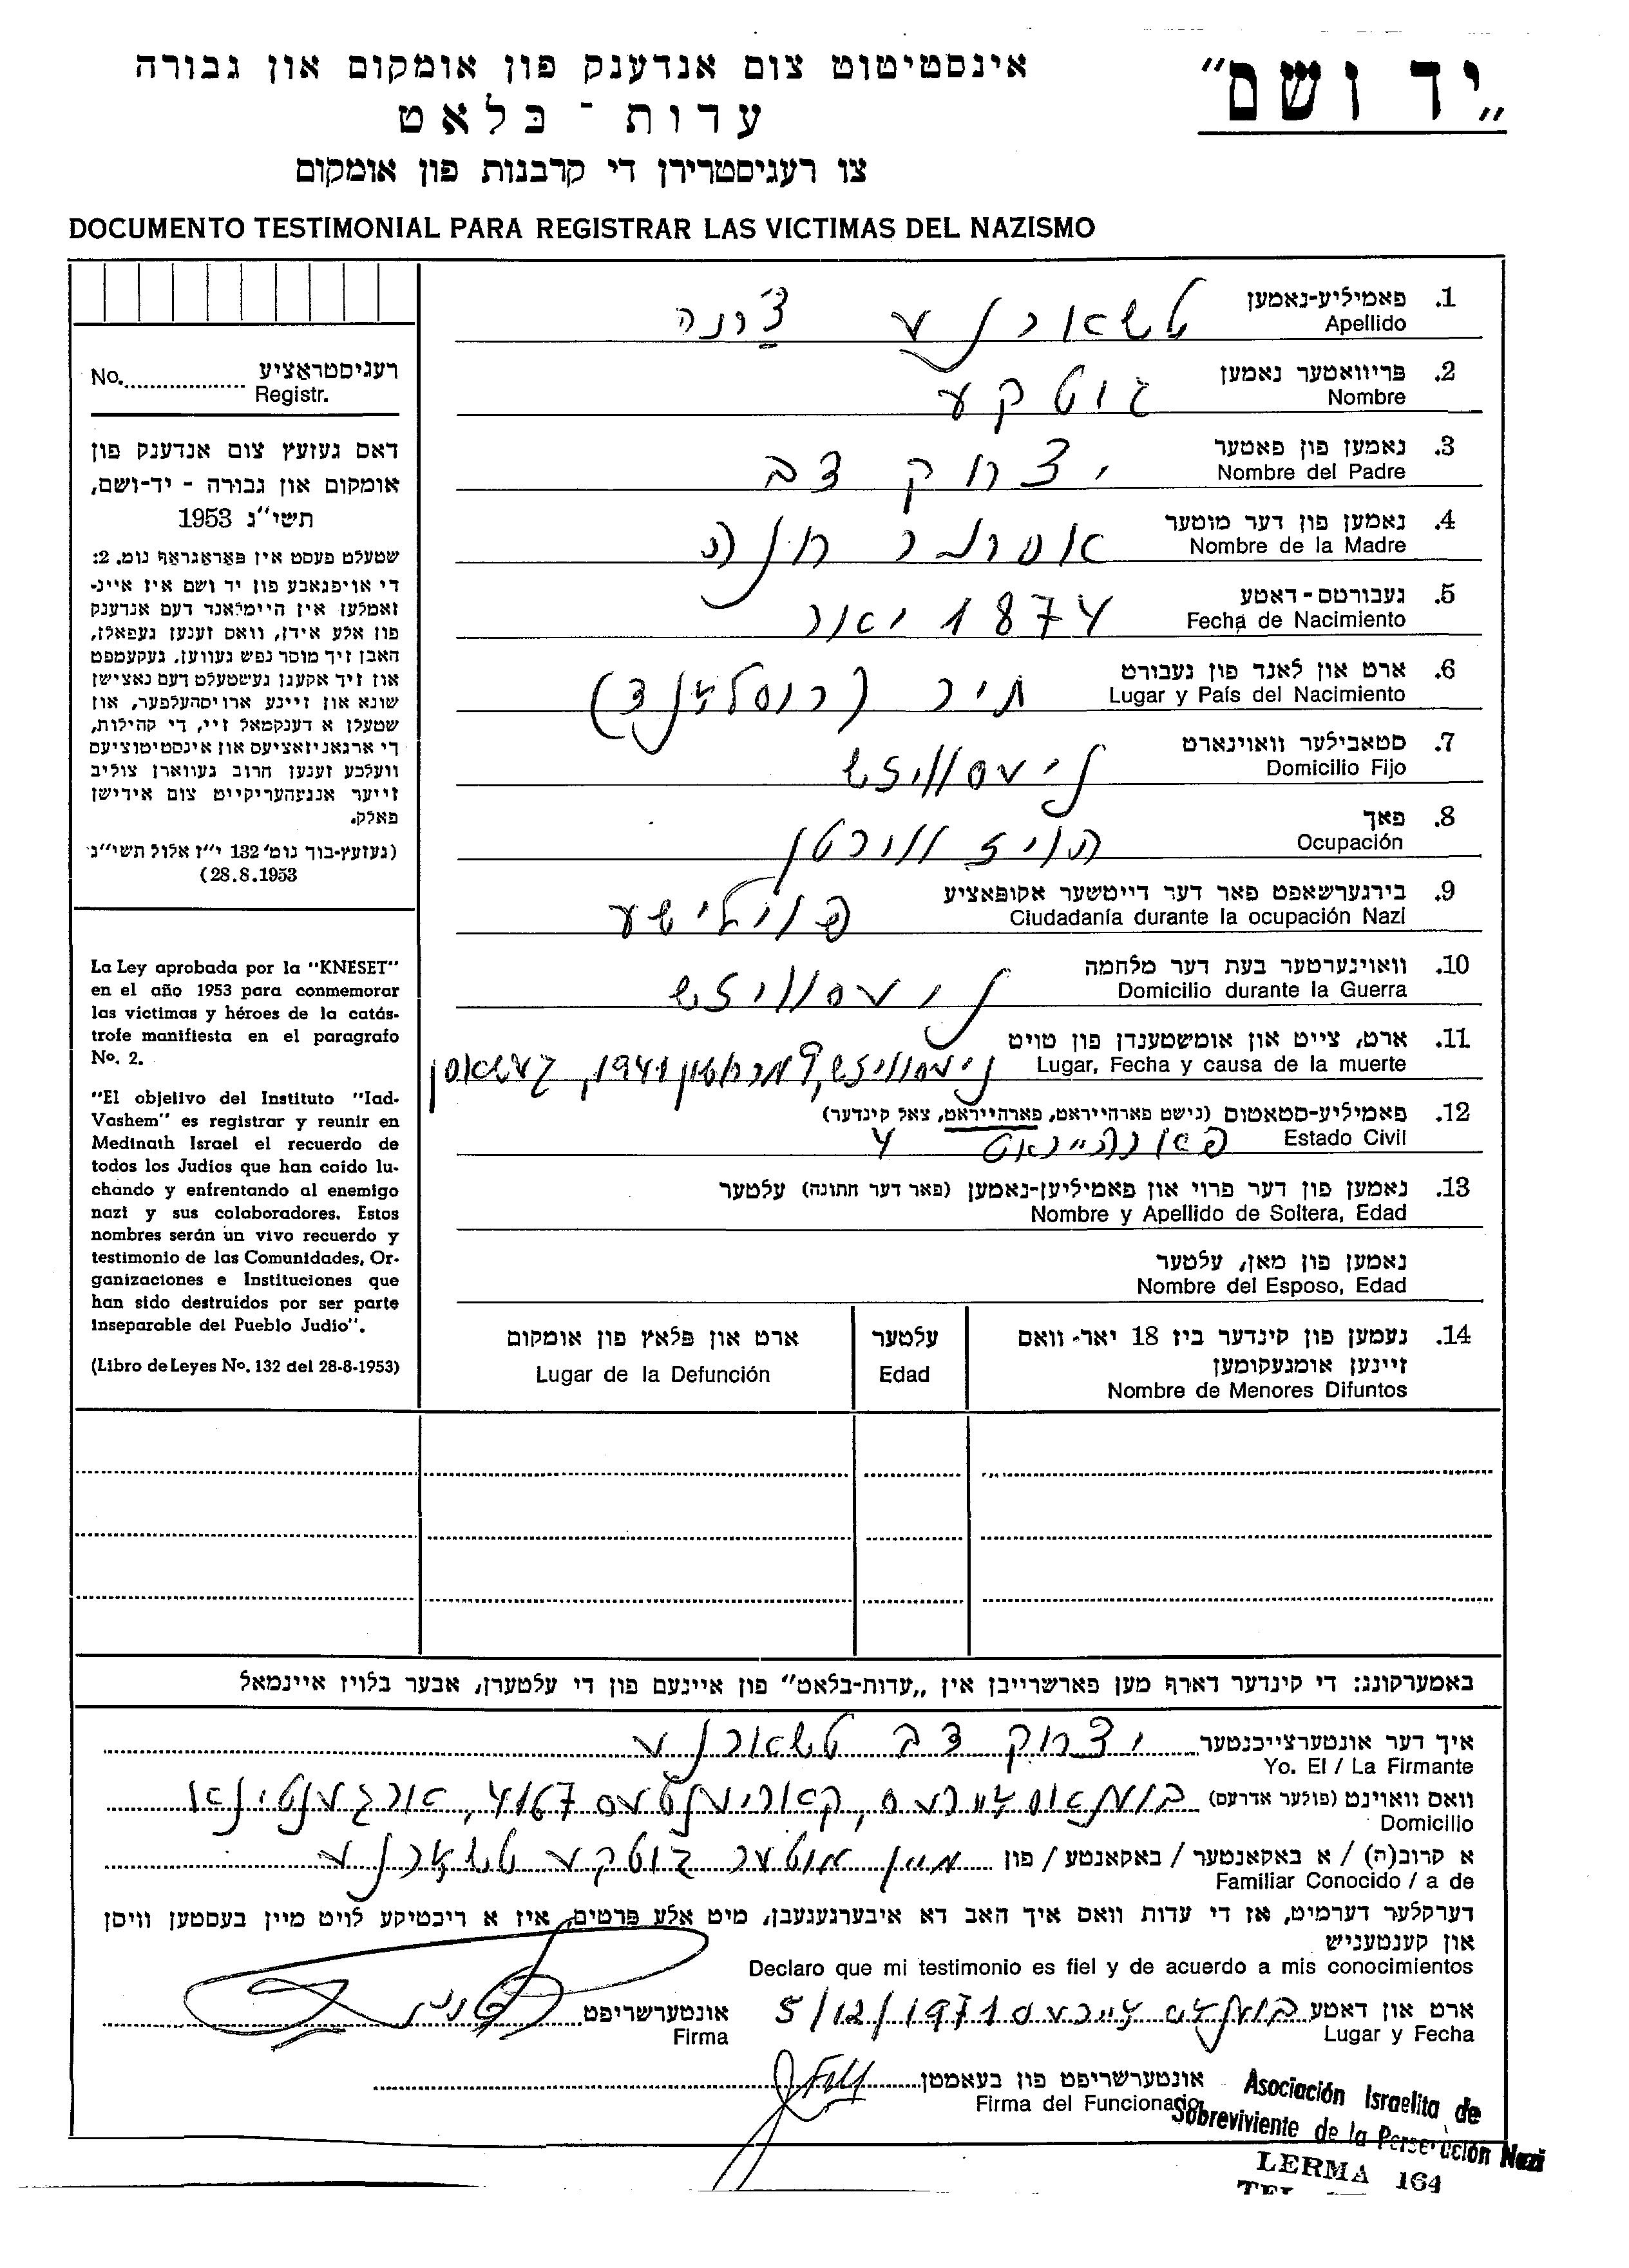 „יד ושם"
אינסטיטוט צום אנדענק פון אומקום און גבורה
עדות־בלאט
צו רעגיסטרירן די קרבנות פון אומקום
DOCUMENTO TESTIMONIAL PARA REGISTRAR LAS VICTIMAS DEL NAZISMO
רעגיסטראציע
No. Registr.
דאס געזעץ צום אנדענק פון
אומקום און גבורה - יד-ושם,
תשי"ג 1953
שטעלט פעסט אין פאראגראף נומ. 2:
די אויפגאבע פון יד ושם איז איינ-
זאמלען אין היימלאנד דעם אנדענק
פון אלע אידן, וואס זענען געפאלן,
האבן זיך מוסר נפש געווען, געקעמפט
און זיך אקעגן געשטעלט דעם נאצישן
שונא און זיינע ארויסהעלפער, און
שטעלן א דענקמאל זיי, די קהילות,
די ארגאניזאציעס און אינסטיטוציעס
וועלכע זענען חרוב געווארן צוליב
זייער אנגעהעריקייט צום אידישן
פאלק.
(געזעץ-בוך נומ' 132 י"ז אלול תשי"ג
28.8.1953)
La Ley aprobada por la "KNESET"
en el año 1953 para conmemorar
las victimas y héroes de la catás-
trofe manifiesta en el paragrafo
Nº. 2.
"El objetivo del Instituto "Iad-
Vashem" es registrar y reunir en
Medinath Israel el recuerdo de
todos los Judios que han caido lu-
chando y enfrentando al enemigo
nazi y sus colaboradores. Estos
nombres serán un vivo recuerdo y
testimonio de las Comunidades, Or-
ganizaciones e Instituciones que
han sido destruidos por ser parte
inseparable del Pueblo Judio".
(Libro de Leyes Nº. 132 del 28-8-1953)
1. פאמיליע-נאמען טשארנע צ'רנה
Apellido
2. פריוואטער נאמען גוטקע
Nombre
3. נאמען פון פאטער יצחק דב
Nombre del Padre
4. נאמען פון דער מוטער אסתר חנה
Nombre de la Madre
5. געבורטס-דאטע 1874 יאר
Fecha de Nacimiento
6. ארט און לאנד פון געבורט מיר (רוסלאנד)
Lugar y País del Nacimiento
7. סטאבילער וואוינארט ניעסוויזש
Domicilio Fijo
8. פאך הויז ווירטן
Ocupación
9. בירגערשאפט פאר דער דייטשער אקופאציע פוילישע
Ciudadanía durante la ocupación Nazi
10. וואוינערטער בעת דער מלחמה ניעסוויזש
Domicilio durante la Guerra
11. ארט, צייט און אומשטענדן פון טויט ניעסוויזש, 9 מרחשון 1941, געשאסן
Lugar, Fecha y causa de la muerte
12. פאמיליע-סטאטוס (נישט פארהייראט, פארהייראט, צאל קינדער)
Estado Civil פארהייראט 4
13. נאמען פון דער פרוי און פאמיליען-נאמען (פאר דער חתונה) עלטער
Nombre y Apellido de Soltera, Edad
נאמען פון מאן, עלטער
Nombre del Esposo, Edad
14. נעמען פון קינדער ביז 18 יאר- וואס עלטער ארט און פלאץ פון אומקום
זיינען אומגעקומען
Nombre de Menores Difuntos Edad Lugar de la Defunción
באמערקונג: די קינדער דארף מען פארשרייבן אין „עדות-בלאט" פון איינעם פון די עלטערן, אבער בלויז איינמאל
איך דער אונטערצייכנטער יצחק דב טשארנע
Yo. El / La Firmante
וואס וואוינט (פולער אדרעס) בוענאס איירעס, קאריענטעס 4167, ארגענטינא
Domicilio
א קרוב(ה) / א באקאנטער / באקאנטע / פון מיין מוטער גוטקע טשארנע
Familiar Conocido / a de
דערקלער דערמיט, אז די עדות וואס איך האב דא איבערגעגעבן, מיט אלע פרטים, איז א ריכטיקע לויט מיין בעסטען וויסן
און קענטעניש
Declaro que mi testimonio es fiel y de acuerdo a mis conocimientos
ארט און דאטע בוענאס איירעס 5/12/1971 אונטערשריפט
Lugar y Fecha Firma
אונטערשריפט פון בעאמטן
Firma del Funcionado
Asociación Israelita de
Sobreviviente de la Persecución Nazi
LERMA 164